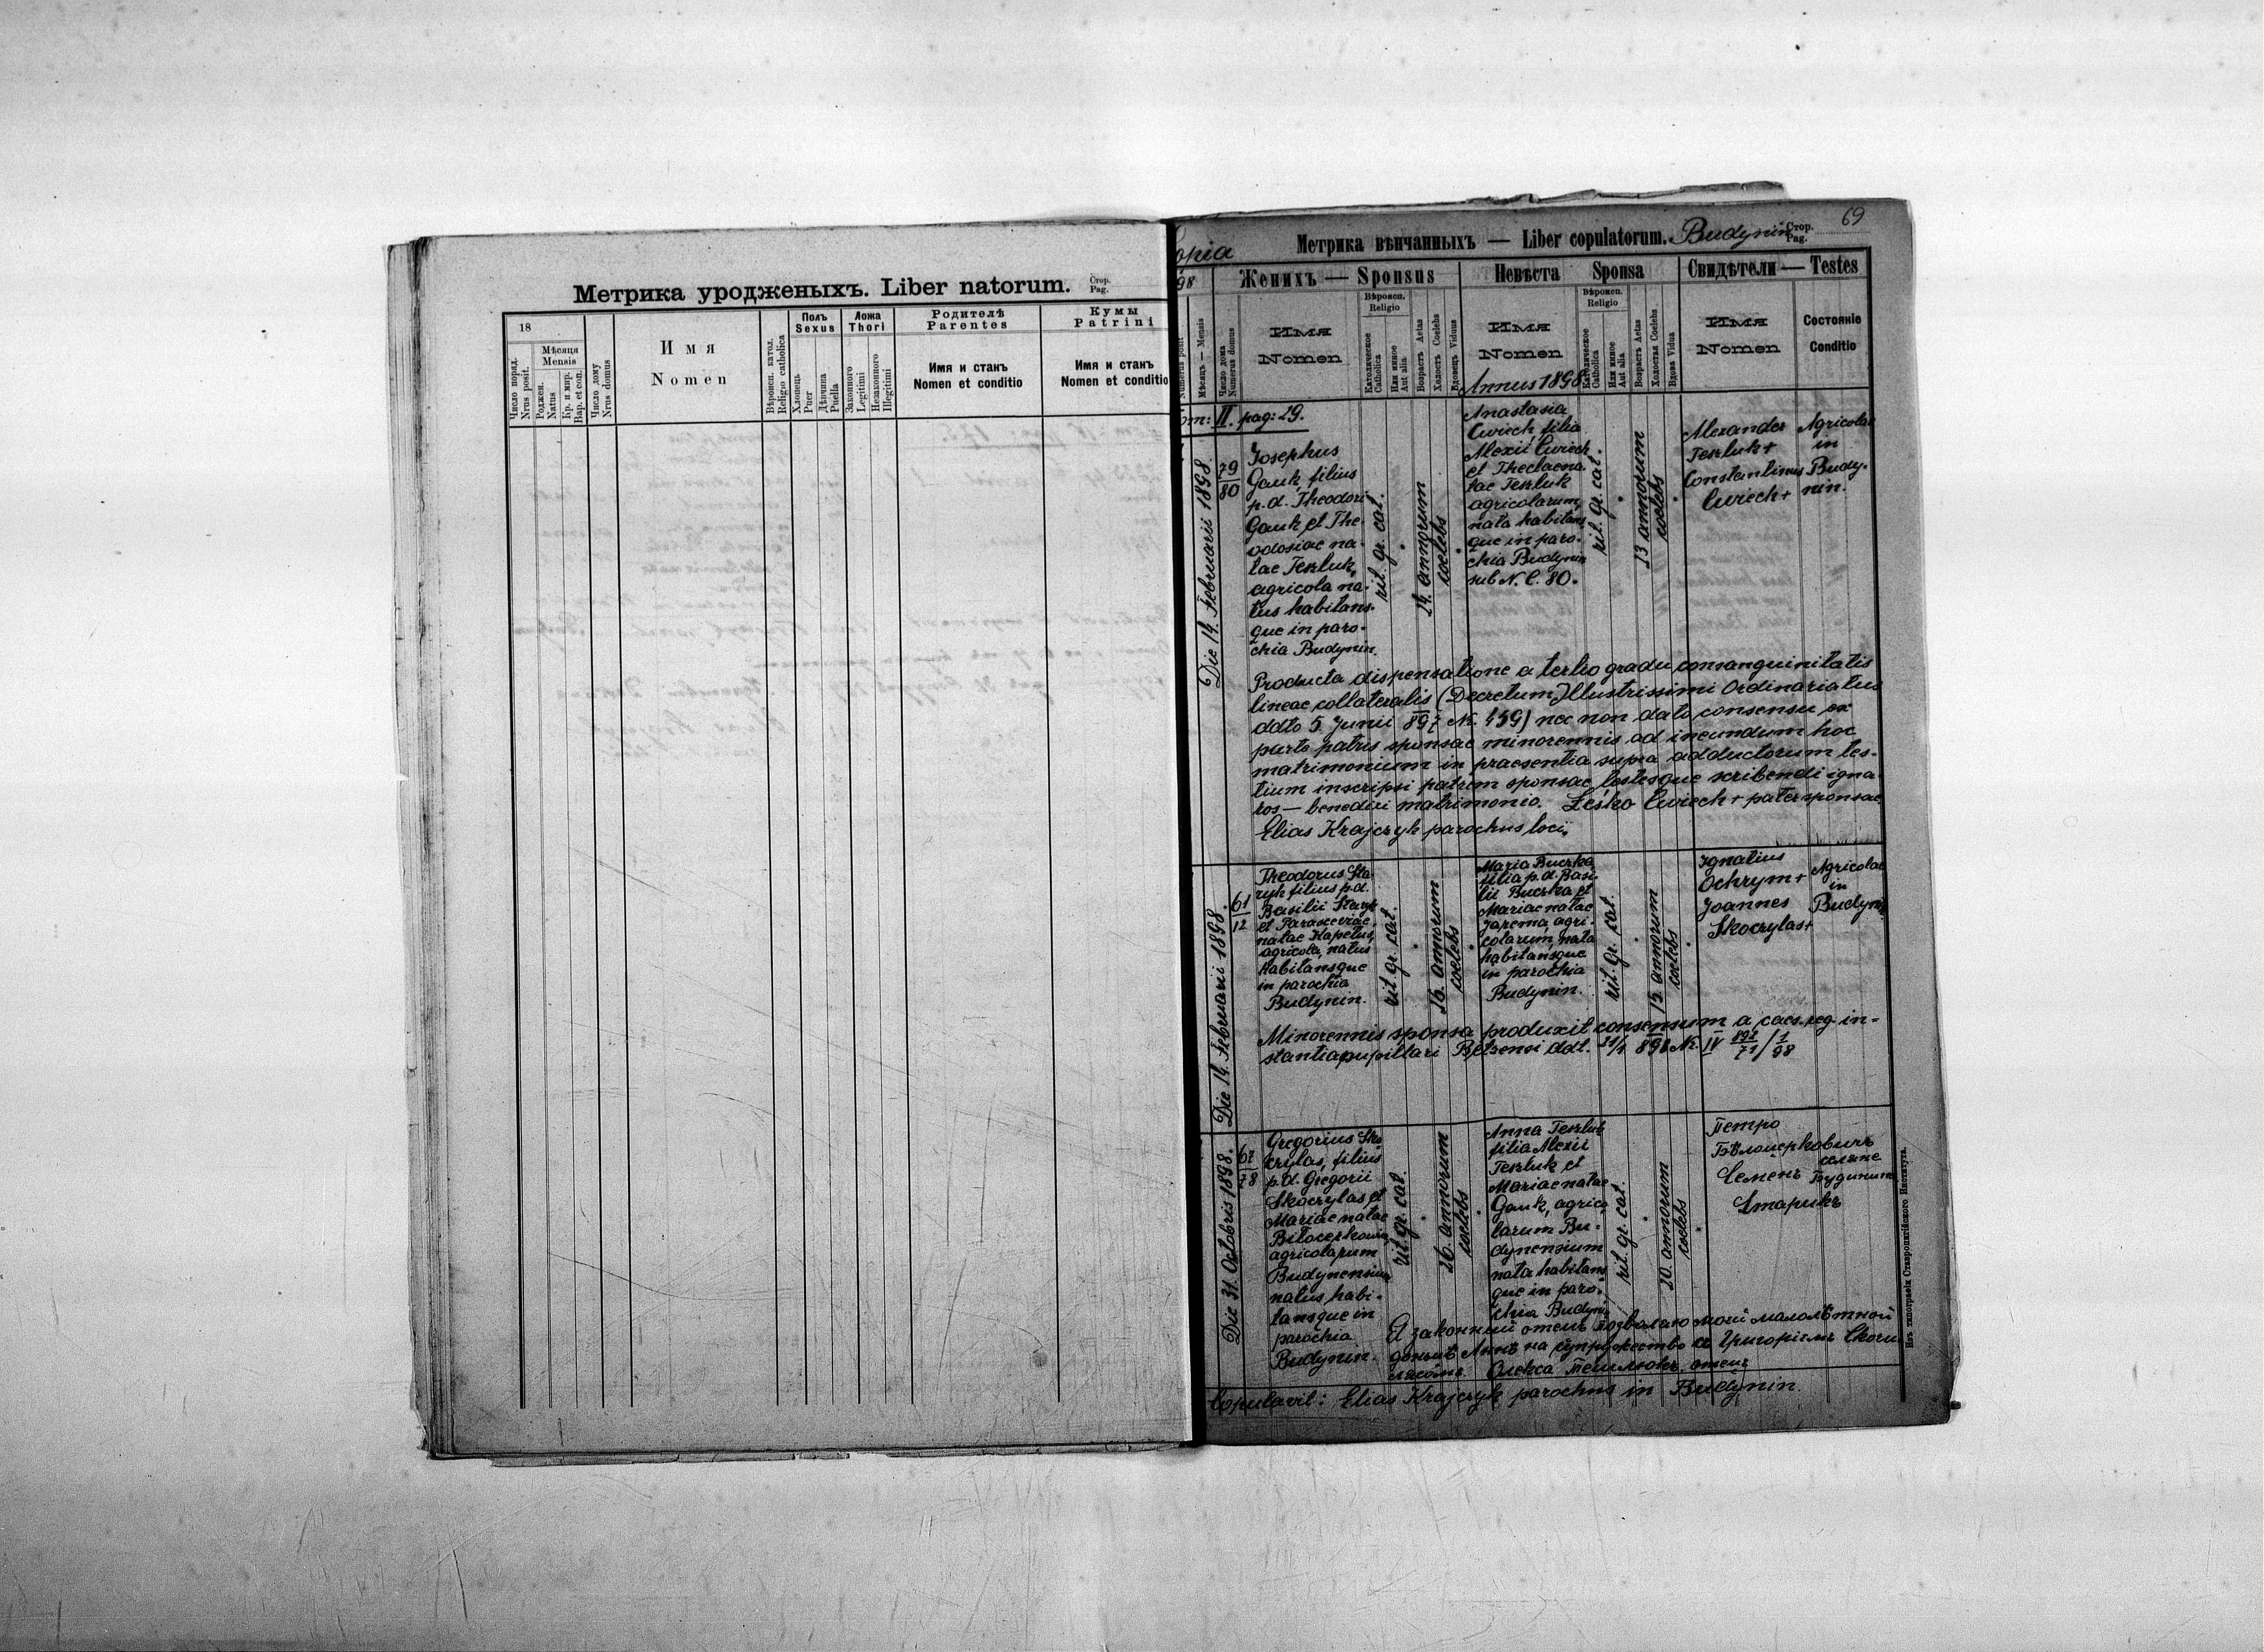 Метрика уродженыхъ. Liber natorum.
Стор.
Pag.
18
Число поряд.
Nrus posit.
Мѣсяця
Mensis
Роджен.
Natus
Кр. и мир.
Bap. et con.
Число дому
Nrus domus
Имя
Nomen
Вѣроисп. катол.
Religio catholica
Полъ
Sexus
Хлопець
Puer
Дѣвчина
Puella
Ложа
Thori
Законного
Legitimi
Незаконного
Illegitimi
Родителѣ
Parentes
Имя и станъ
Nomen et conditio
Кумы
Patrini
Имя и станъ
Nomen et conditio
69
opia
Метрика вѣнчанныхъ — Liber copulatorum. Budynin
Стор.
Pag.
98
Женихъ — Sponsus
Невѣста Sponsa
Свидѣтели — Testes
Numerus posit
Мѣсяць — Mensis
Число дома
Numerus domus
Имя
Nomen
Вѣроисп.
Religio
Католическое
Catholica
Или инное
Aut alia
Возрастъ Aetas
Холостъ Coelebs
Вдовецъ Viduus
Имя
Nomen
Annus 1898
Вѣроисп.
Religio
Католическое
Catholica
Или инное
Aut alia
Возрастъ Aetas
Холостая Coelebs
Вдова Vidua
Имя
Nomen
Состояніе
Conditio
om: II. pag: 29.
Die 14. Februarii 1898
79
80
Josephus
Gauk filius
p. d. Theodori
Gauk et The-
odosiae na-
tae Teszluk,
agricola na-
tus habitans-
que in paro-
chia Budynin.
rit. gr. cat.
24. annorum
coelebs
Anastasia
Cwiech filia
Alexii Cwiech
et Theclae na-
tae Teszluk
agricolarum,
nata habitans
que in paro-
chia Budynin
sub N. C. 80.
rit. gr. cat.
13 annorum
coelebs
Alexander
Teszluk +
Constantinus
Cwiech +
Agricolae
in
Budy-
nin.
Producta dispensatione a tertio gradu consanguinitatis
lineae collateralis (Decretum Illustrissimi Ordinariatus
ddto 5. Junii 897 N. 459) nec non dato consensu ex
parte patris sponsae minorennis ad ineundum hoc
matrimonium in praesentia supra adductorum tes-
tium inscripsi patrem sponsae testesque scribendi igna-
ros — benedixi matrimonio. Leśko Cwiech + pater sponsae
Elias Krajczyk parochus loci.
Die 14. Februarii 1898.
61
12
Theodorus Sta-
ryk filius p. d.
Basilii Staryk
et Parasceviae
natae Kapelus,
agricola, natus
habitansque
in parochia
Budynin.
rit. gr. cat.
coelebs
Maria Buczka
filia p. d. Basi-
lii Buczka et
Mariae natae
Jarema, agri-
colarum, nata
habitansque
in parochia
Budynin.
rit. gr. cat.
15. annorum
coelebs
Ignatius
Ochrym +
Joannes
Skoczylas +
Agricolae
in
Budynin
Minorennis sponsa produxit consensum a caes. reg. in-
stantia pupillari Belzensi ddt. 31/1 898 Nr. IV
Die 31. Octobris 1898.
67
78
Gregorius Sko-
czylas, filius
p. d. Gregorii
Skoczylas et
Mariae natae
Biłocerkowicz
agricolarum
Budynensium
natus habi-
tansque in
parochia
Budynin.
rit. gr. cat.
26. annorum
coelebs
Anna Teszluk
filia Alexii
Teszluk et
Mariae natae
Gauk, agrico-
larum Bu-
dynensium
nata habitans
que in paro-
chia Budyni
rit. gr. cat.
20. annorum
coelebs
Петро
Бѣлоцерковичъ
Семенъ
Старикъ
селяне
Будинина
Я законный отець позваляю моей малолѣтной
доньцѣ Аннѣ на супружество съ Григоріемъ Скочи
лясомъ. Олекса Тешлюкъ отець
Copulavit: Elias Krajczyk parochus in Budynin.
Изъ типографіи Ставропигійского Института.